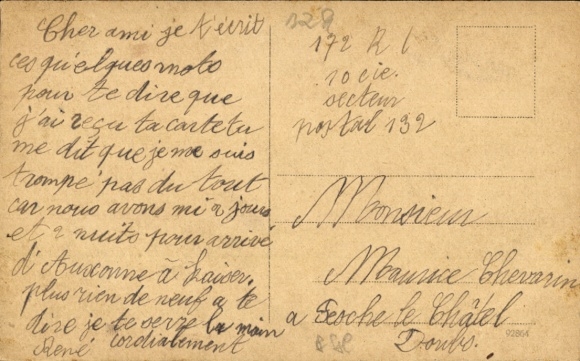 Cher ami je t'écrit
ces quelques mots
pour te dire que
j'ai reçu ta carte tu
me dit que je me suis
trompé pas du tout
car nous avons mi 2 jours
et 2 nuits pour arrivé
d'Auxonne à
plus rien de neuf a te
dire je te serre la main
René cordialement
172 R I
10 cie.
secteur
postal 132
Monsieur
Maurice Chevarin
a Roche le Châtel
Doubs.
92864